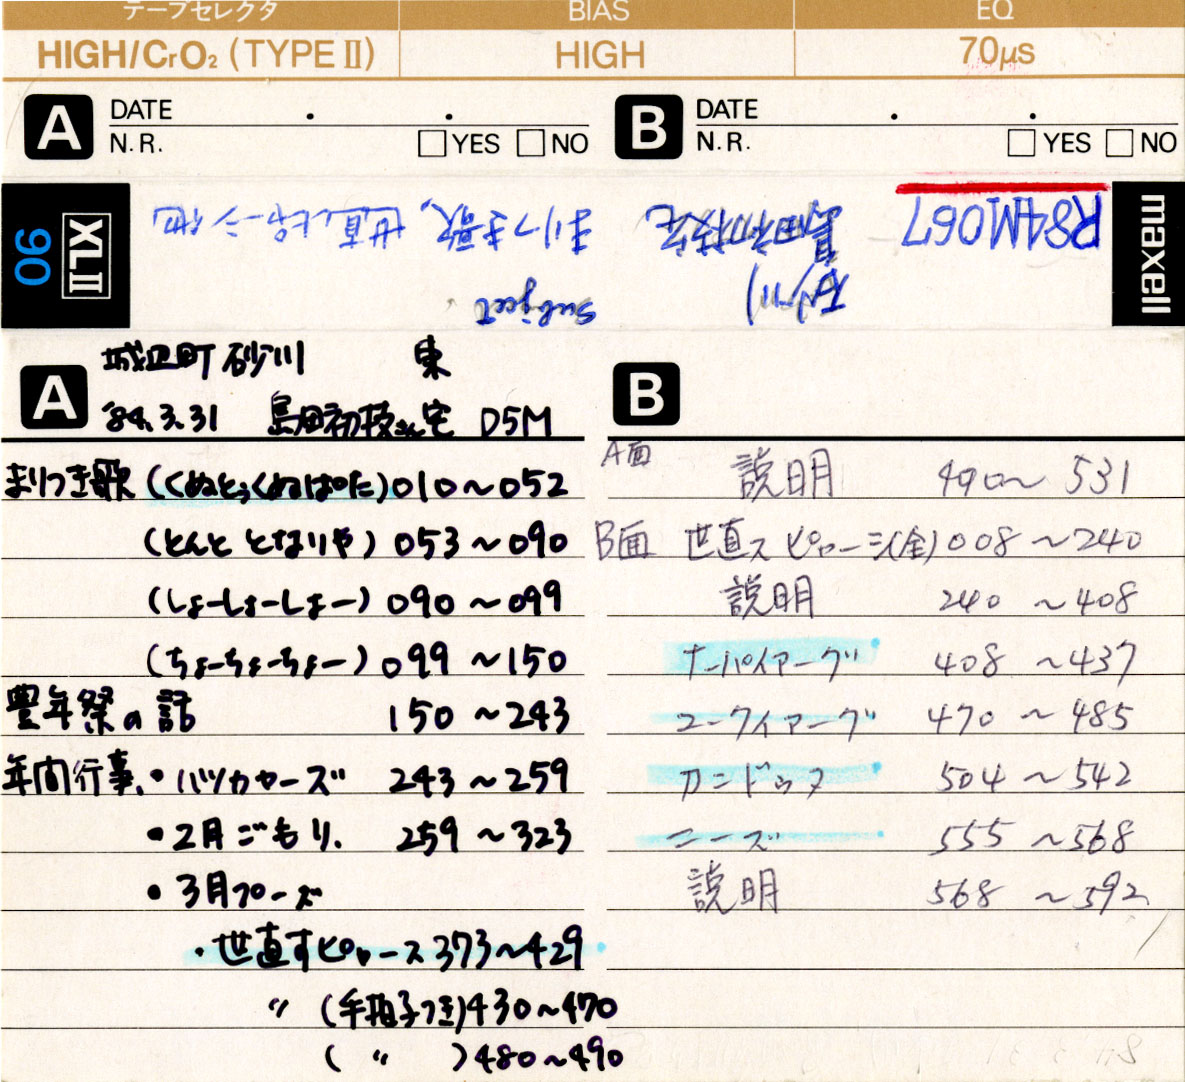 テープセレクタ BIAS EQ
HIGH/CrO₂ (TYPE II) HIGH 70μs
A DATE . . B DATE . .
N.R. □YES □NO N.R. □YES □NO
maxell
R84M067
砂川)
島田初枝宅
Subject
まりつき歌, 世直しピャーシ他
XLII 90
A 城辺町 砂川 東
'84.3.31 島田初枝さん宅 D5M
まりつき歌 (くぬとぅくぬぱのた) 010〜052
(とんと となりや) 053〜090
(しょーしょーしょー) 090〜099
(ちょーちょーちょー) 099〜150
豊年祭の話 150〜243
年間行事、・バツカヤーズ 243〜259
・2月ごもり. 259〜323
・3月プーズ
・世直すピャース 373〜429
〃 (手拍子つき) 430〜470
( 〃 ) 480〜490
B
A面 説明 490〜531
B面 世直スピャーシ(全) 008〜240
説明 240〜408
ナーパイアーグ 408〜437
ユークイアーグ 470〜485
カニドゥス 504〜542
ニーズ 555〜568
説明 568〜592